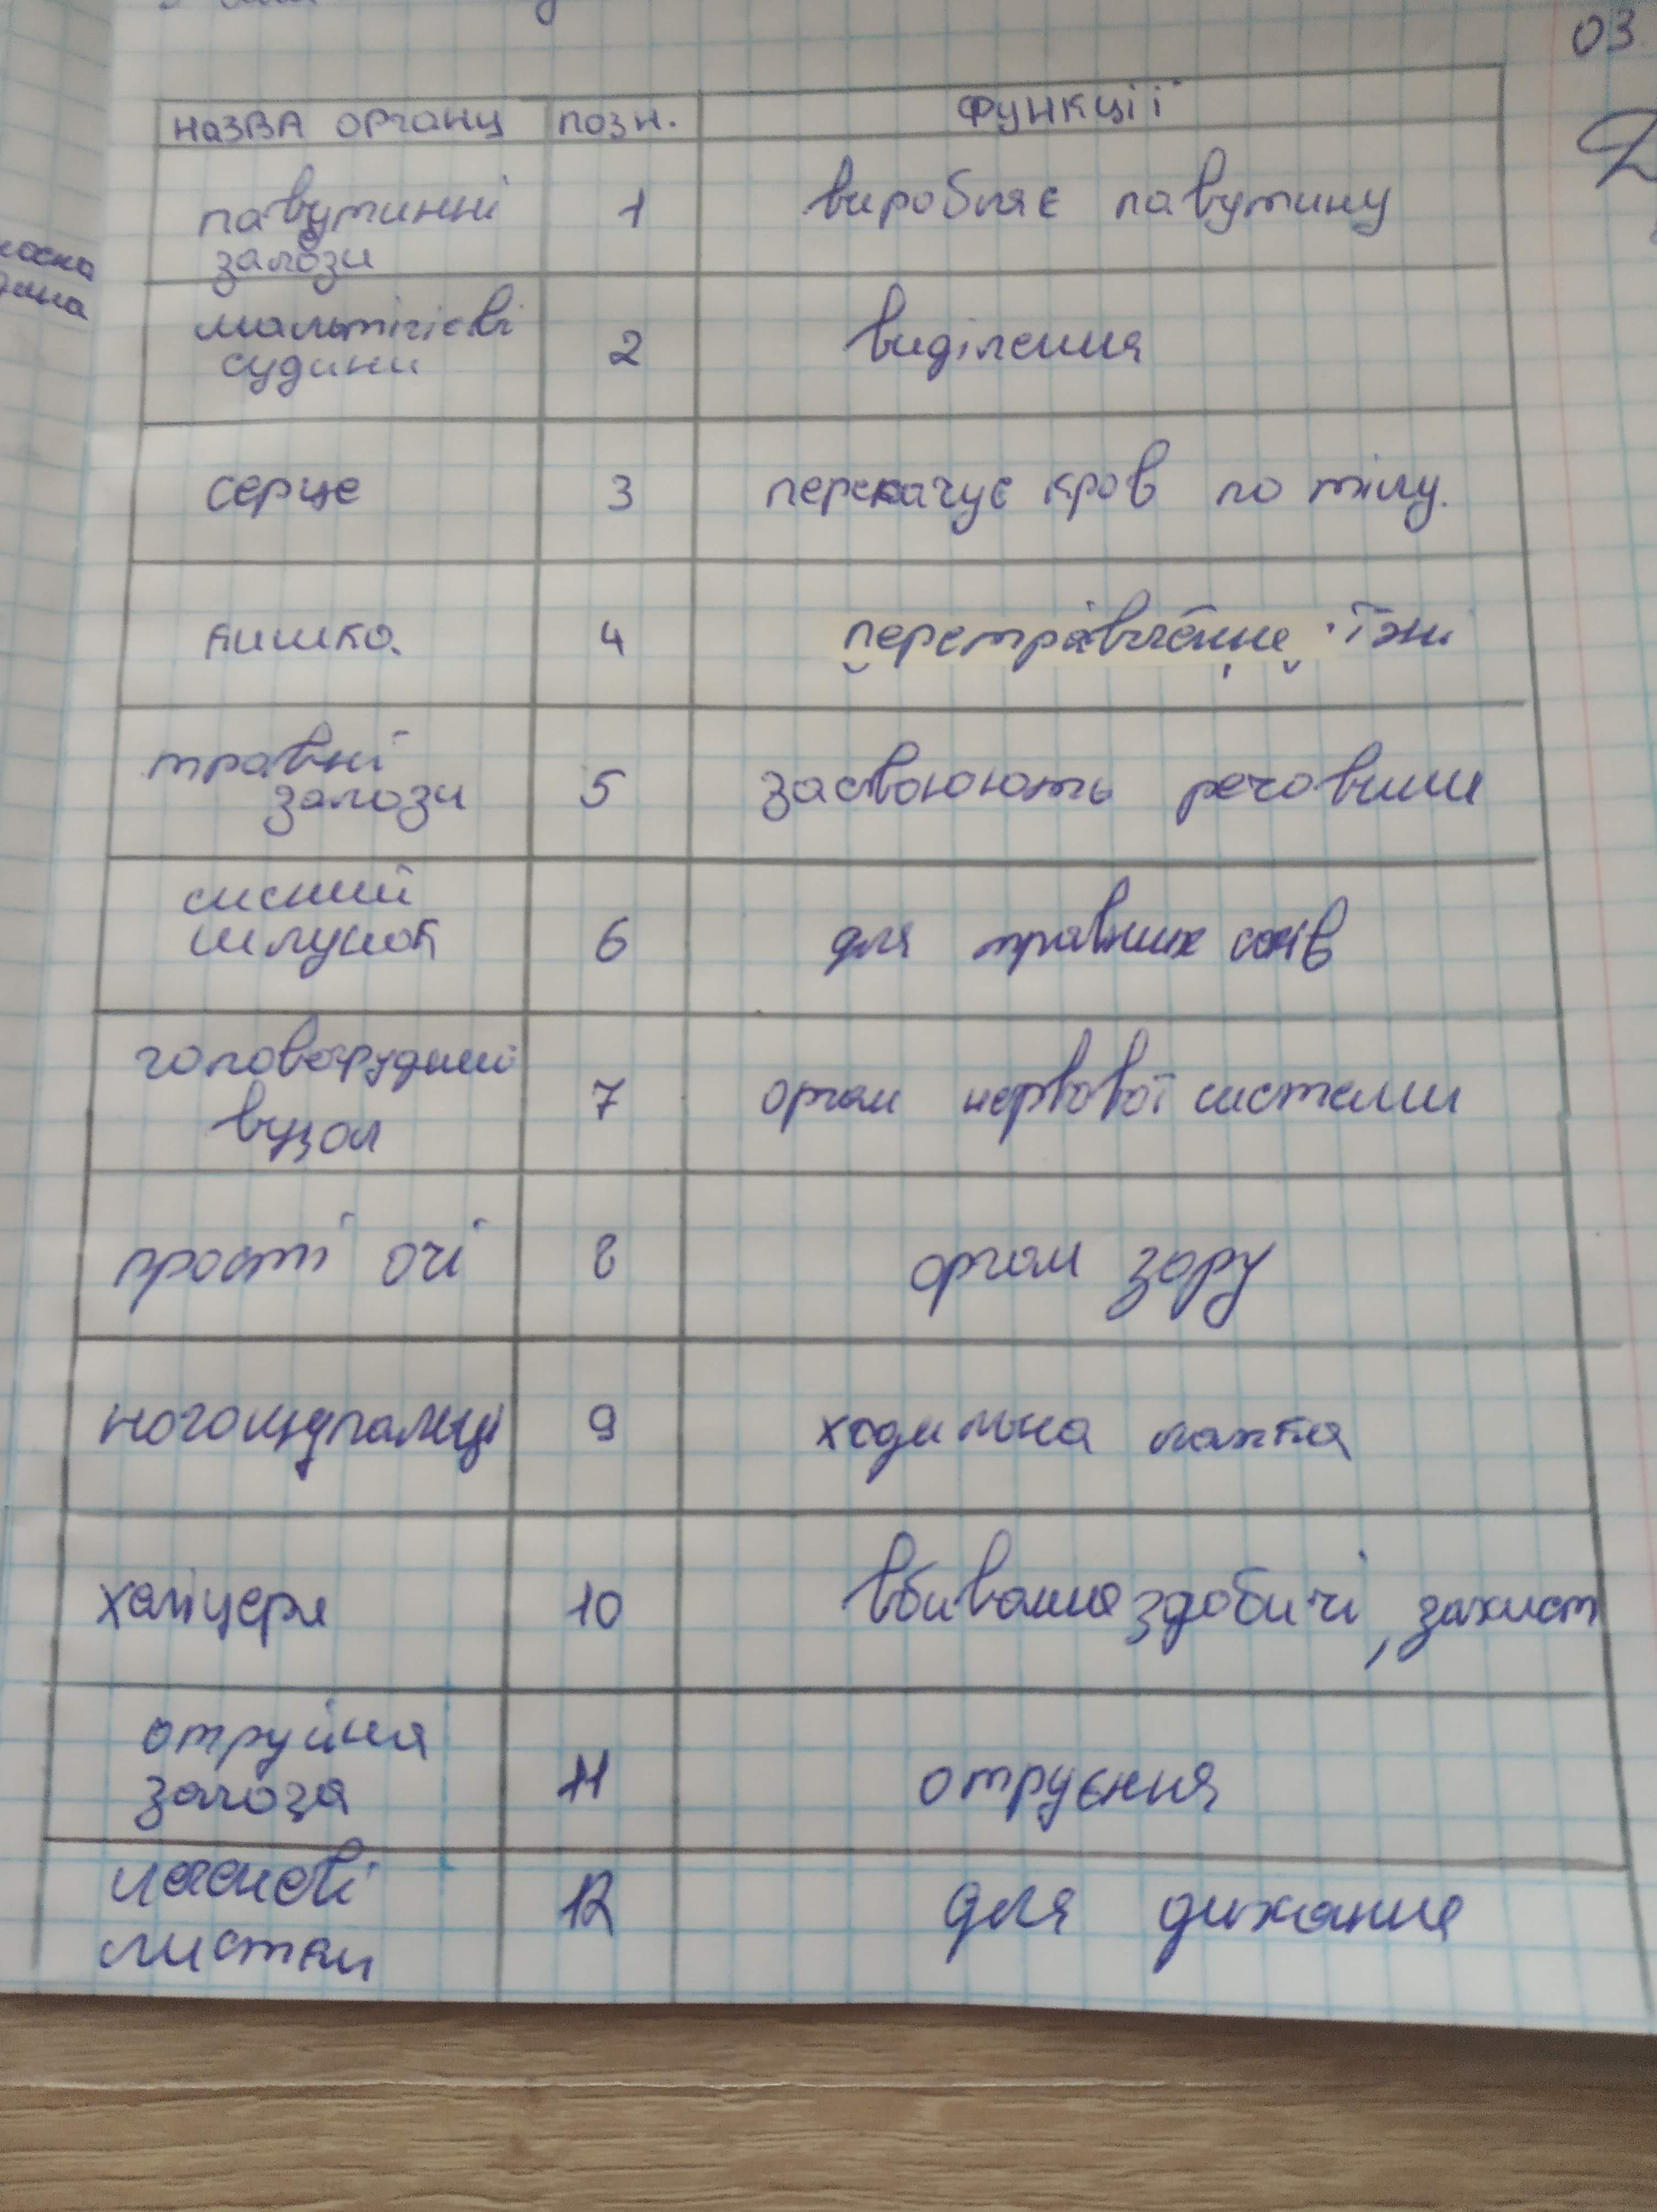 03.
назва органу позн. функції
павутинні
залози
1 виробляє павутину
мальпігієві
судини
2 виділення
серце 3 перекачує кров по тілу.
кишка. 4 перетравлення їжі
травні
залози
5 засвоюють речовини
сисний
шлунок
6 для травних соків
головогрудний
вузол
7 орган нервової системи
прості очі 8 орган зору
ногощупальці 9 ходильна лапка
хеліцери 10 вбивання здобичі, захист
отруйна
залоза
11 отруєння
легеневі
листки
12 для дихання